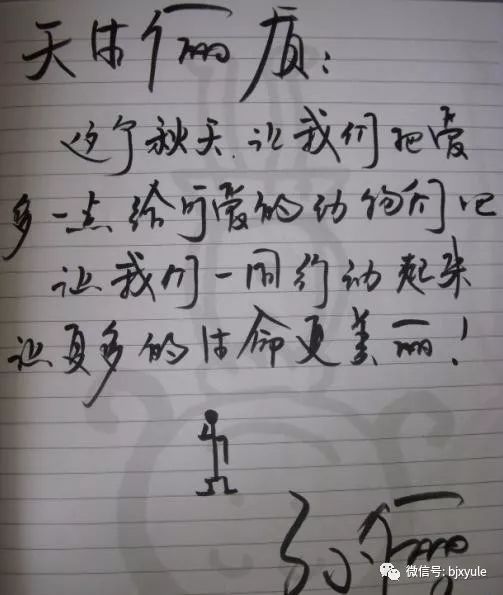 天生俪质：
这个秋天，让我们把爱
多一点给可爱的动物们吧
让我们一同行动起来
让更多的生命更美丽！
孙俪
微信号: bjxyule